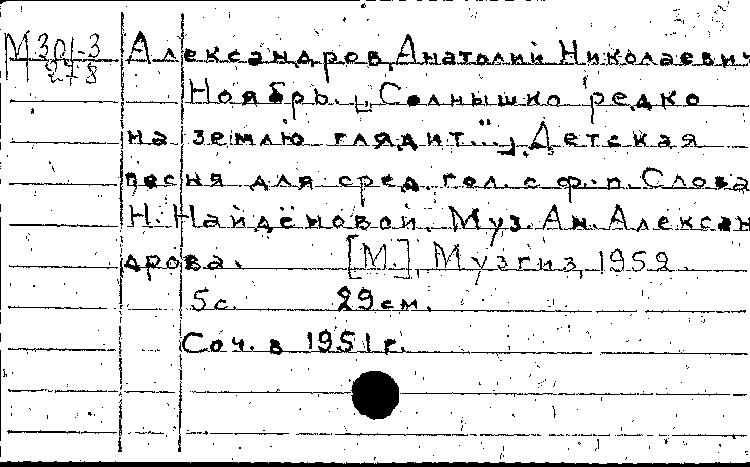 М 301-3 Александров, Анатолий Николаевич
278
Ноябрь. „Солнышко редко
на землю глядит..." Детская
песня для сред. гол. с ф.-п. Слова
Н. Найдёновой. Муз. Ан. Алексан
дрова. [М.], Музгиз, 1952.
5 с. 29 см.
Соч. в 1951 г.